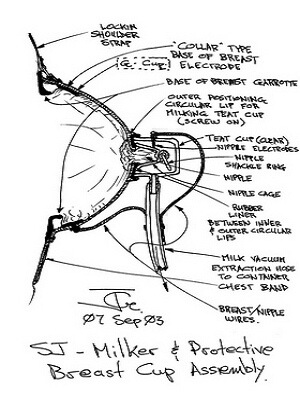 LOCKIN
SHOULDER
STRAP
"COLLAR" TYPE
BASE OF BREAST
ELECTRODE
BASE OF BREAST GARROTTE
OUTER POSITIONING
CIRCULAR LIP FOR
MILKING TEAT CUP
(SCREW ON)
TEAT CUP (CLEAR)
NIPPLE ELECTRODES
NIPPLE
SHACKLE RING
NIPPLE
NIPPLE CAGE
RUBBER
LINER
BETWEEN INNER
& OUTER CIRCULAR
LIPS
MILK VACUUM
EXTRACTION HOSE
TO CONTAINER
CHEST BAND
BREAST/NIPPLE
WIRES.
07 Sep 03
SJ - Milker & Protective
Breast Cup Assembly.